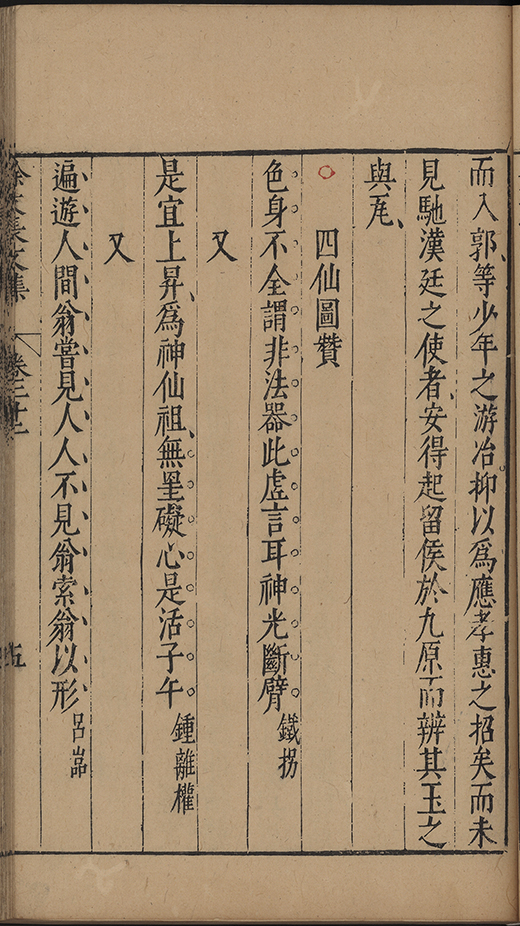 而入郭等少年之游冶抑以爲應孝惠之招矣而未
見馳漢廷之使者安得起留侯於九原而辨其玉之
與𤬪
四仙圖贊
色身不全謂非法器此虛言耳神光斷臂 鐵拐
又
是宜上昇爲神仙祖無罣礙心是活子午 鍾離權
又
遍遊人間翁嘗見人人不見翁索翁以形 呂喦
徐文長文集 卷二十二 五